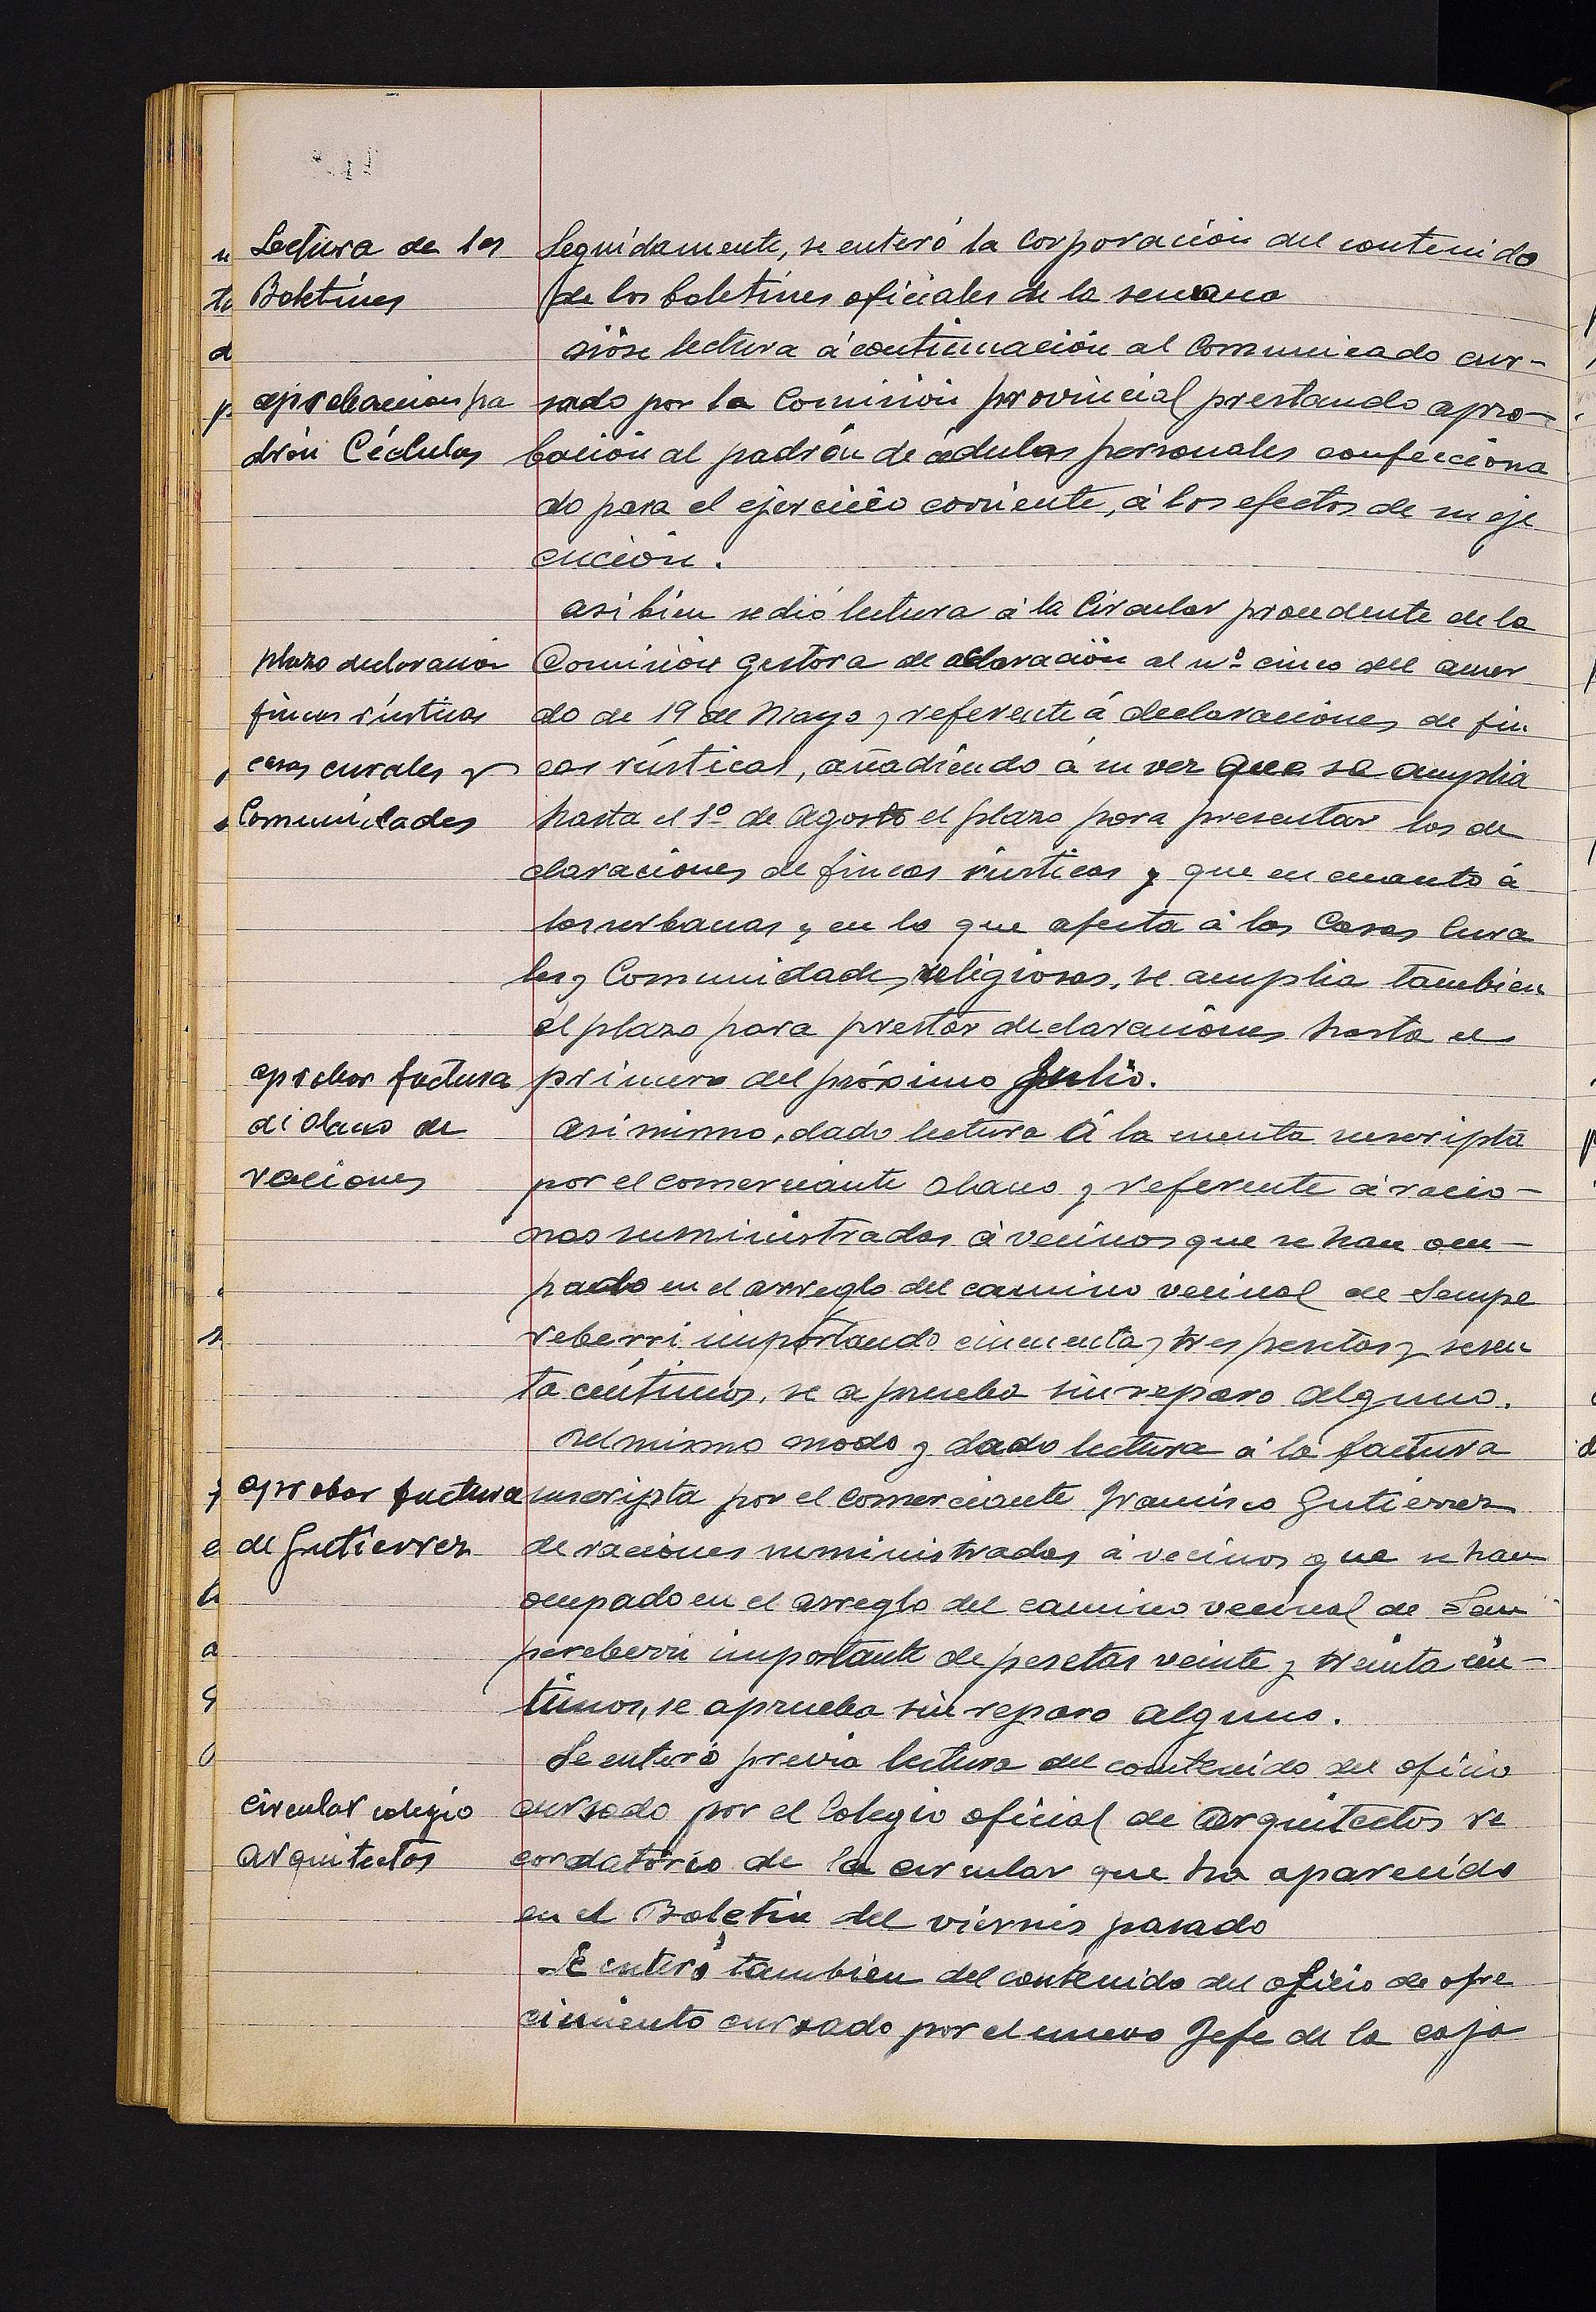 Lectura de los
Boletines
Seguidamente, se enteró la Corporación del contenido
de los boletines oficiales de la semana
Dióse lectura á continuación al Comunicado cur-
aprobacion pa
drón Cédulas
sado por la Comisión provincial prestando apro-
bación al padrón de cédulas personales confecciona
do para el ejercicio corriente, á los efectos de su eje
cución.
asi bien se dió lectura á la Circular procedente de la
plazo declaración
fincas rústicas
casas curales y
Comunidades
Comisión gestora de aclaración al nº cinco del acuer
do de 19 de Mayo y referente á declaraciones de fin
cas rústicas, añadiendo á su vez que se amplia
hasta el 1º de Agosto el plazo para presentar las de
claraciones de fincas rústicas y que en cuanto á
las urbanas y en lo que afecta á las Casas Cura
les y Comunidades religiosas, se amplia tambien
el plazo para prestar declaraciones hasta el
primero del próximo Julio.
aprobar factura
de Olano de
raciones
Asi mismo, dado lectura á la cuenta suscripta
por el comerciante Olano y referente á racio-
nes suministradas á vecinos que se han ocu-
pado en el arreglo del camino vecinal de Sempe
reberri importando cincuenta y tres pesetas y sesen
ta céntimos, se aprueba sin reparo alguno.
Del mismo modo y dado lectura á la factura
aprobar factura
de Gutierrez
suscripta por el comerciante Francisco Gutierrez
de raciones suministradas á vecinos que se han
ocupado en el arreglo del camino vecinal de Sem
pereberri importante de pesetas veinte y treinta cén-
timos, se aprueba sin reparo alguno.
Se enteró previa lectura del contenido del oficio
circular colegio
arquitectos
cursado por el Colegio oficial de Arquitectos re
cordatorio de la circular que ha aparecido
en el Boletin del viernes pasado
Se enteró tambien del contenido del oficio de ofre
cimiento cursado por el nuevo Jefe de la caja